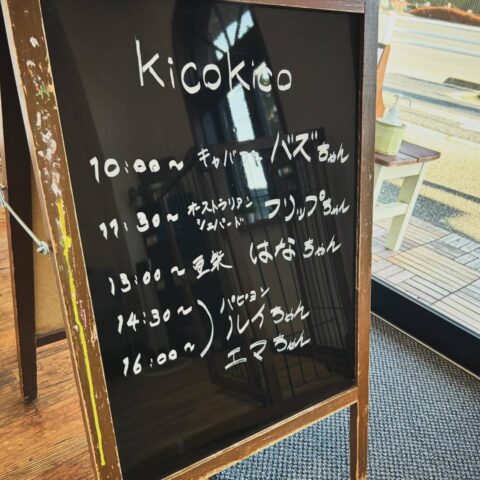 kicokico
10:00～ キャバ バズちゃん
11:30～ オーストラリアン シェパード フリップちゃん
13:00～ 豆柴 はなちゃん
14:30～ パピヨン ルイちゃん
16:00～ エマちゃん